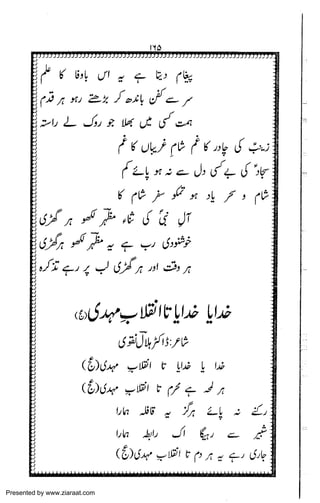 ۱۲۵
پیغام دیتا ہے یہ اس باوفا کا علم
سر سے کفن باندھ کر بڑھتے رہو ہر قدم
ہمت کسی میں بھلا جو روک لے راستہ
زینبؑ کی چادر کا غم شامِ غریباں کا غم
سجادؑ کی بے کسی دل سے نہ ہو پائے کم
شام و سحر یاد ہو تمکو سفر شام کا
آلِ نبیؐ کی ثناء مظہر لکھو ہر گھڑی
خوشنودی رب ہے یہ مظہر لکھو ہر گھڑی
ہر وقت اور ہر گھڑی لب پر رہے تذکرہ
خدایا خدایا تا انقلابِ مہدی (عج)
شاعر: ڈاکٹر ہلال نقوی
خدا یا خدایا تا انقلاب مہدی (عج)
ہر لمحہ ہے محرم تا انقلاب مہدی (عج)
رکنے نہ پائے ہرگز یہ قافلہ ہمارا
شبیرؑ سے رہیگا اک رابطہ ہمارا
جاری رہے یہ ہر دم تا انقلاب مہدی (عج)
Presented by www.ziaraat.com